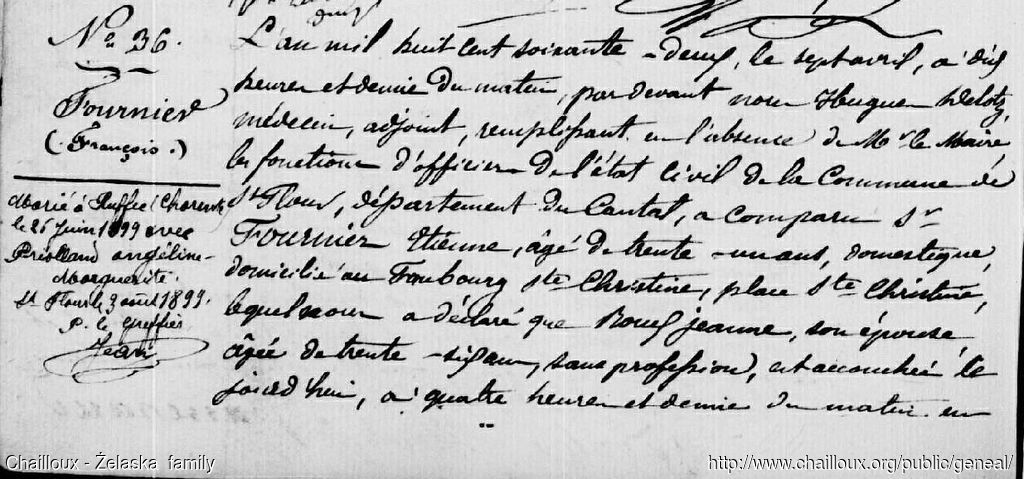 No 36.
Fournier
(François.)
Marié à Ruffec (Charente)
le 26 Juin 1899 avec
angéline
Marguerite.
St Flour le 3 août 1899.
P. le Greffier
L'an mil huit cent soixante-deux, le sept avril, à dix
heures et demie du matin, par devant nous Hugues
médecin, adjoint, remplissant en l'absence de Mr le Maire
les fonctions d'officier de l'état civil de la Commune de
St Flour, département du Cantal, a comparu Sr
Fournier Etienne, âgé de trente-un ans, domestique,
domicilié au Faubourg Ste Christine, place Ste Christine,
lequel nous a déclaré que Roux jeanne, son épouse,
âgée de trente-six ans, sans profession, est accouchée le
jourd'hui, à quatre heures et demie du matin en
Chailloux - Żelaska family
http://www.chailloux.org/public/geneal/